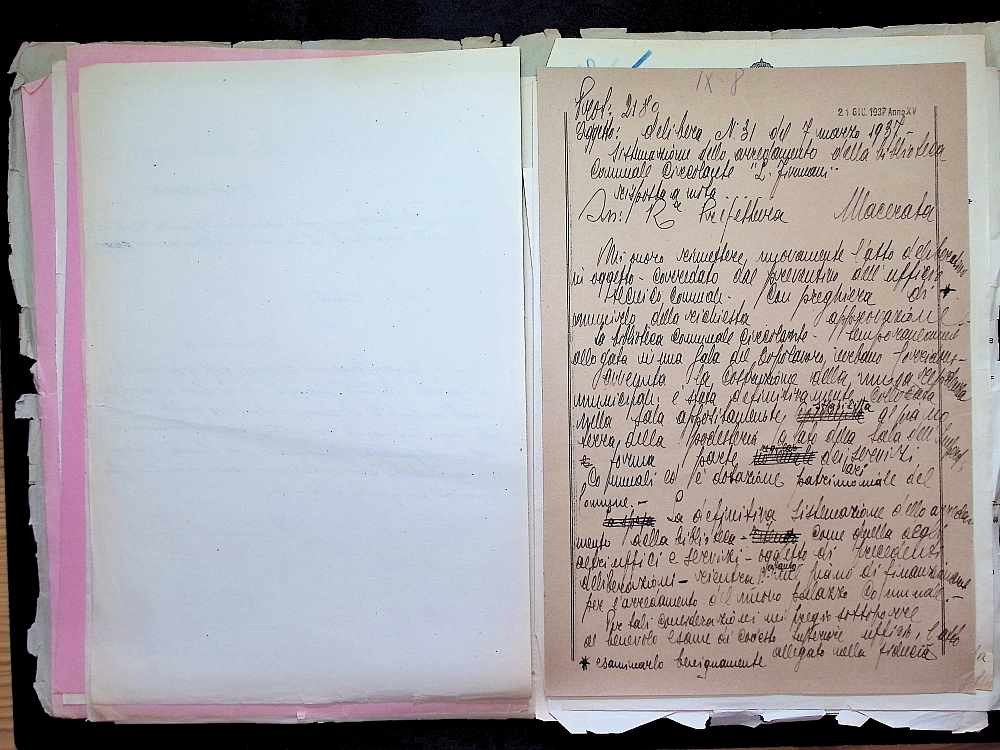 IX-8
Prot: 2180
21 GIU. 1937 Anno XV
Oggetto: delibera N 31 del 7 marzo 1937-
Sistemazione dello arredamento della biblioteca
Comunale Circolante "L.
risposta a nota
R.a Prefettura Macerata
Mi onoro rimettere, nuovamente l'atto deliberativo
in oggetto - corredato dal preventivo dell'ufficio
tecnico comunale. Con preghiera di *
munirlo della richiesta approvazione -
La biblioteca Comunale Circolante - temporaneamente
allogata in una sala del Dopolavoro,
Avvenuta la costruzione della, nuova residenza
municipale, è stata definitivamente collocata
nella sala appositamente al piano
terra, della Podesteria a lato della sala dell'
e forma parte dei servizi
Comunali ed è dotazione patrimoniale del
Comune. -
La definitiva sistemazione dello arreda
mento della biblioteca - come quella degli
altri uffici e servizi - oggetto di precedenti
deliberazioni - rientra nel piano di finanziamento
per l'arredamento del nuovo palazzo Comunale. -
Per tali considerazioni mi pregio sottoporre
al benevolo esame di codesto Superiore ufficio, l'atto
allegato nella fiducia
* esaminarlo benignamente